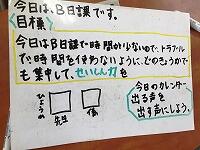 今日はB日課です。
目標
今日はB日課で時間が少ないので、トラブル
で時間を使わないように、どのきょうかで
も集中して、せいしん力を
ひょうか
先生
僕
今日のカレンダー
出る声を
出す声にしよう。